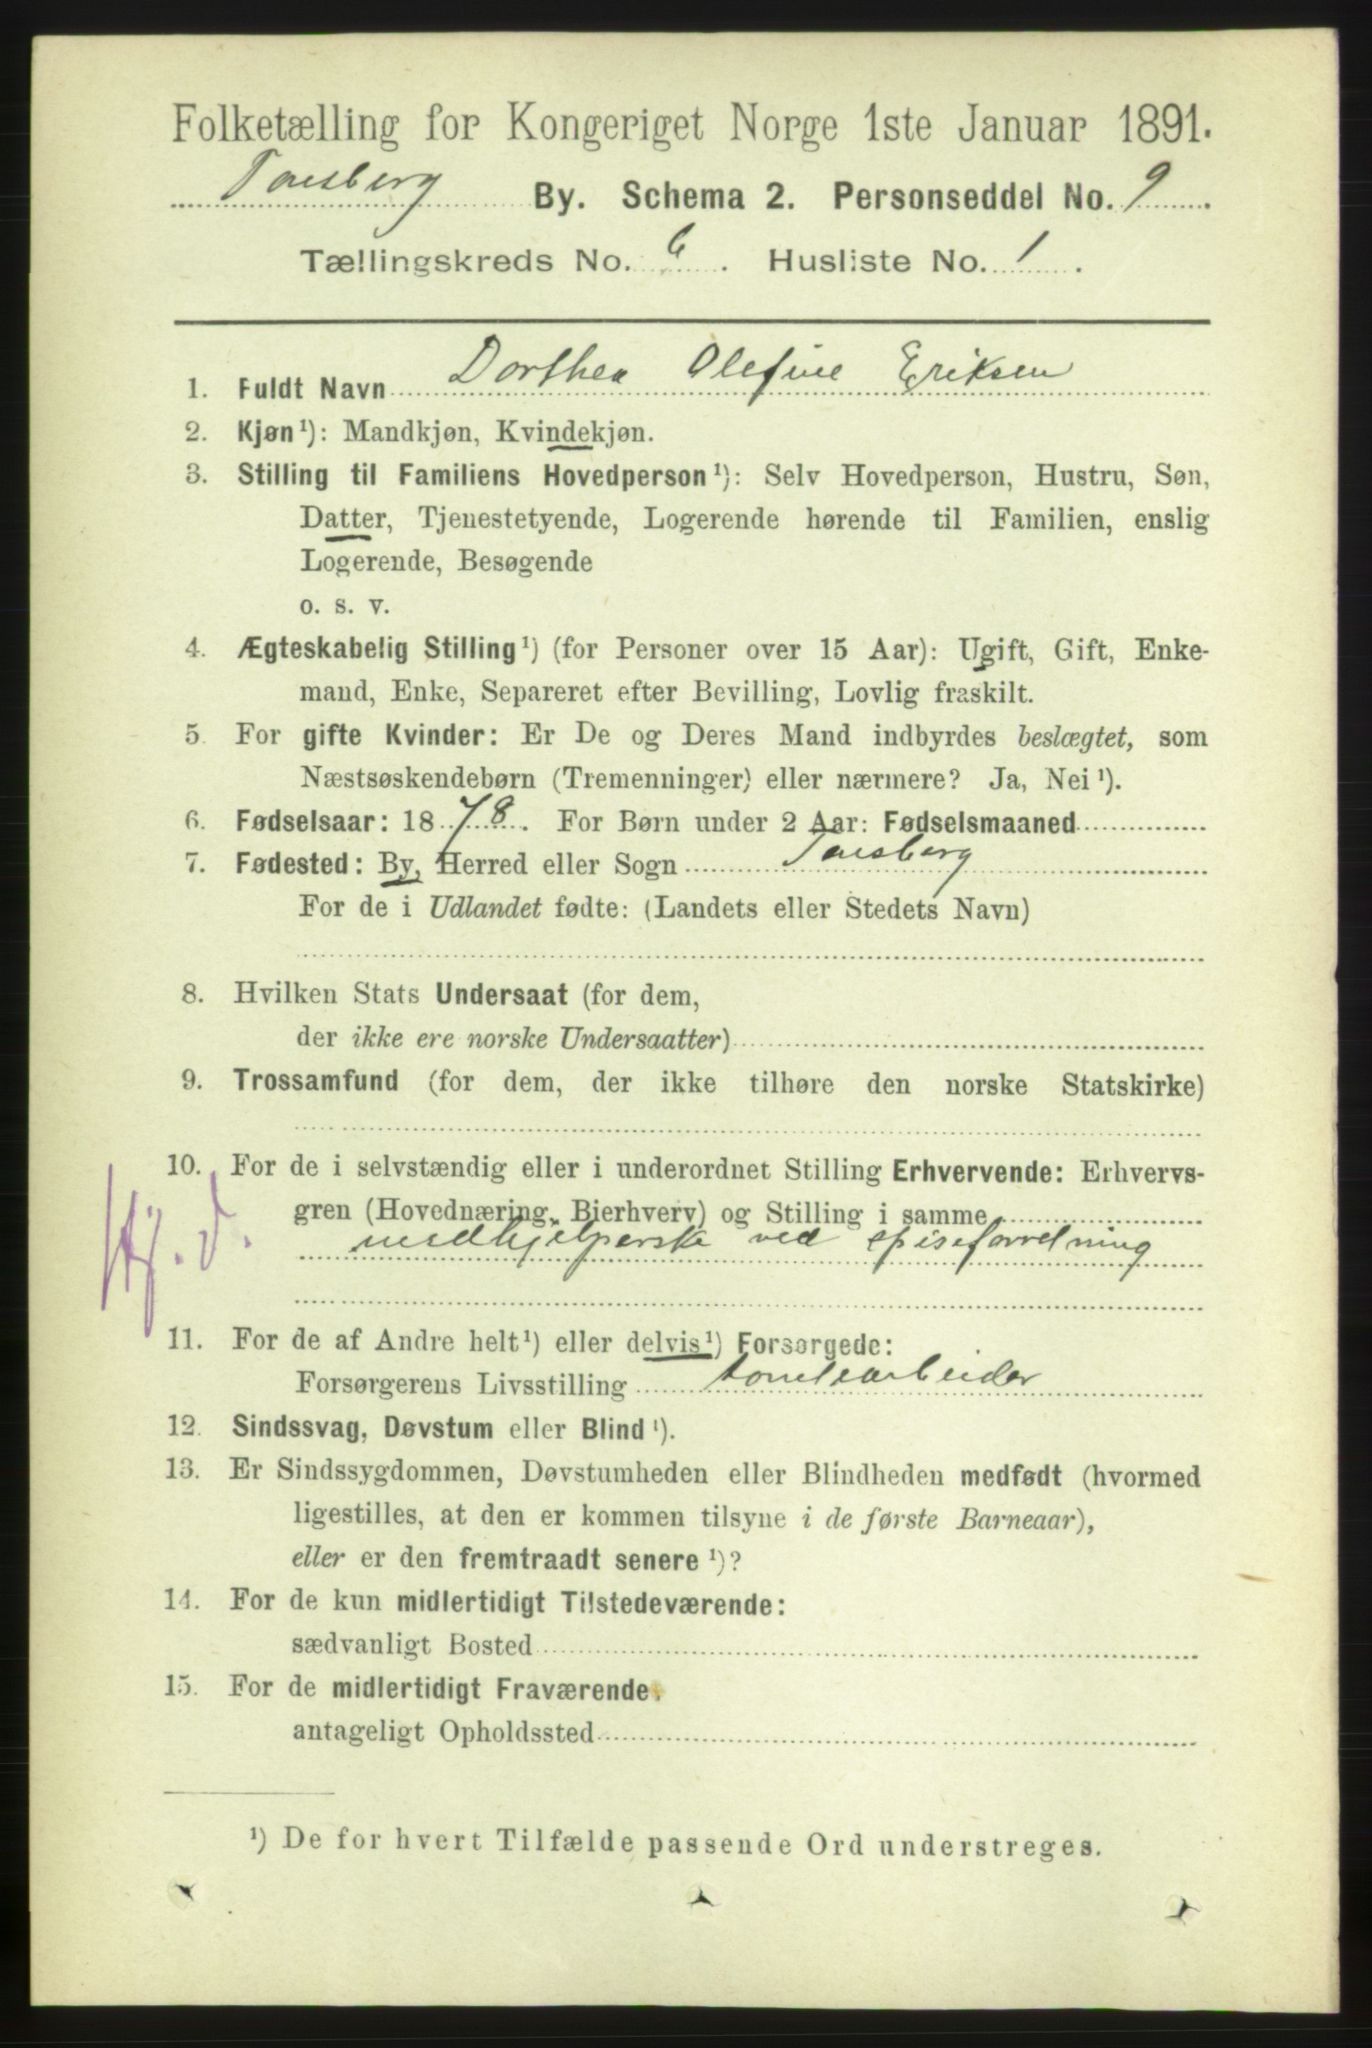 Folketælling for Kongeriget Norge 1ste Januar 1891.
Tønsberg By. Schema 2. Personseddel No. 9
Tællingskreds No. 6. Husliste No. 1.
1. Fuldt Navn Dorthea Olefine Eriksen
2. Kjøn ¹): Mandkjøn, Kvindekjøn.
3. Stilling til Familiens Hovedperson ¹): Selv Hovedperson, Hustru, Søn,
Datter, Tjenestetyende, Logerende hørende til Familien, enslig
Logerende, Besøgende
o. s. v.
4. Ægteskabelig Stilling ¹) (for Personer over 15 Aar): Ugift, Gift, Enke-
mand, Enke, Separeret efter Bevilling, Lovlig fraskilt.
5. For gifte Kvinder: Er De og Deres Mand indbyrdes beslægtet, som
Næstsøskendebørn (Tremenninger) eller nærmere? Ja, Nei ¹).
6. Fødselsaar: 1878. For Børn under 2 Aar: Fødselsmaaned
7. Fødested: By, Herred eller Sogn Tønsberg
For de i Udlandet fødte: (Landets eller Stedets Navn)
8. Hvilken Stats Undersaat (for dem,
der ikke ere norske Undersaatter)
9. Trossamfund (for dem, der ikke tilhøre den norske Statskirke)
10. For de i selvstændig eller i underordnet Stilling Erhvervende: Erhvervs-
gren (Hovednæring, Bierhverv) og Stilling i samme
Hj. d. medhjelperske ved spiseforretning
11. For de af Andre helt ¹) eller delvis ¹) Forsørgede:
Forsørgerens Livsstilling tomtearbeider
12. Sindssvag, Døvstum eller Blind ¹).
13. Er Sindssygdommen, Døvstumheden eller Blindheden medfødt (hvormed
ligestilles, at den er kommen tilsyne i de første Barneaar),
eller er den fremtraadt senere ¹)?
14. For de kun midlertidigt Tilstedeværende:
sædvanligt Bosted
15. For de midlertidigt Fraværende.
antageligt Opholdssted
¹) De for hvert Tilfælde passende Ord understreges.